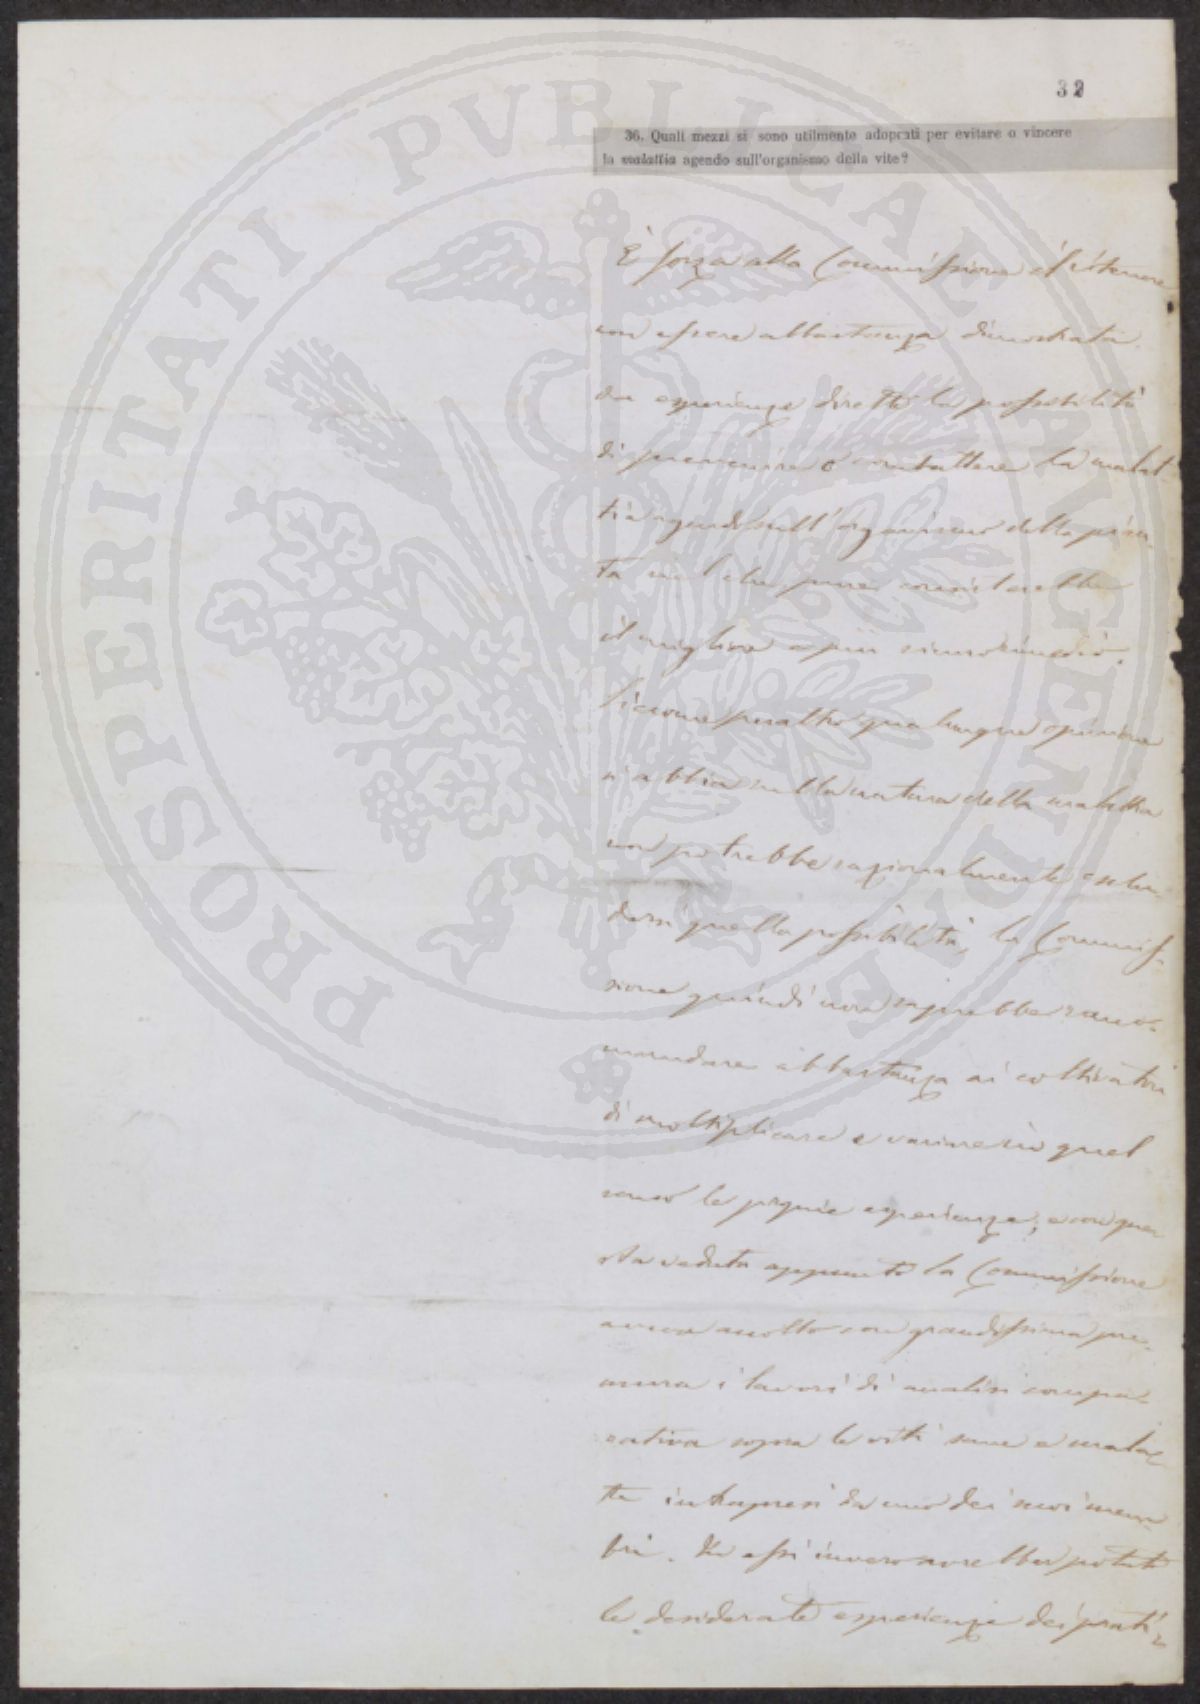 32
36. Quali mezzi si sono utilmente adoprati per evitare o vincere
la malattia agendo sull'organismo della vite?
È forza alla Commissione il ritenere
non essere abbastanza dimostrata
da esperienze dirette la possibilità
di prevenire o combattere la malat-
tia agendo sull'organismo della pian-
ta nel che pure consisterebbe
il migliore e più sicuro rimedio.
Siccome peraltro qualunque opinione
si abbia sulla natura della malattia
non potrebbe razionalmente esclu-
dersi quella possibilità, la Commis-
sione quindi non saprebbe racco-
mandare abbastanza ai coltivatori
di moltiplicare e variare in quel
senso le proprie esperienze, e con que-
sta veduta appunto la Commissione
aveva accolto con grandissima pre-
mura i lavori di analisi compa-
rativa sopra le viti sane e malat-
te intrapresi da uno dei suoi mem-
bri. Da essi invero sarebber potute
le desiderate esperienze dei prati-
PROSPERITATI PVBLICAE AVGENDAE